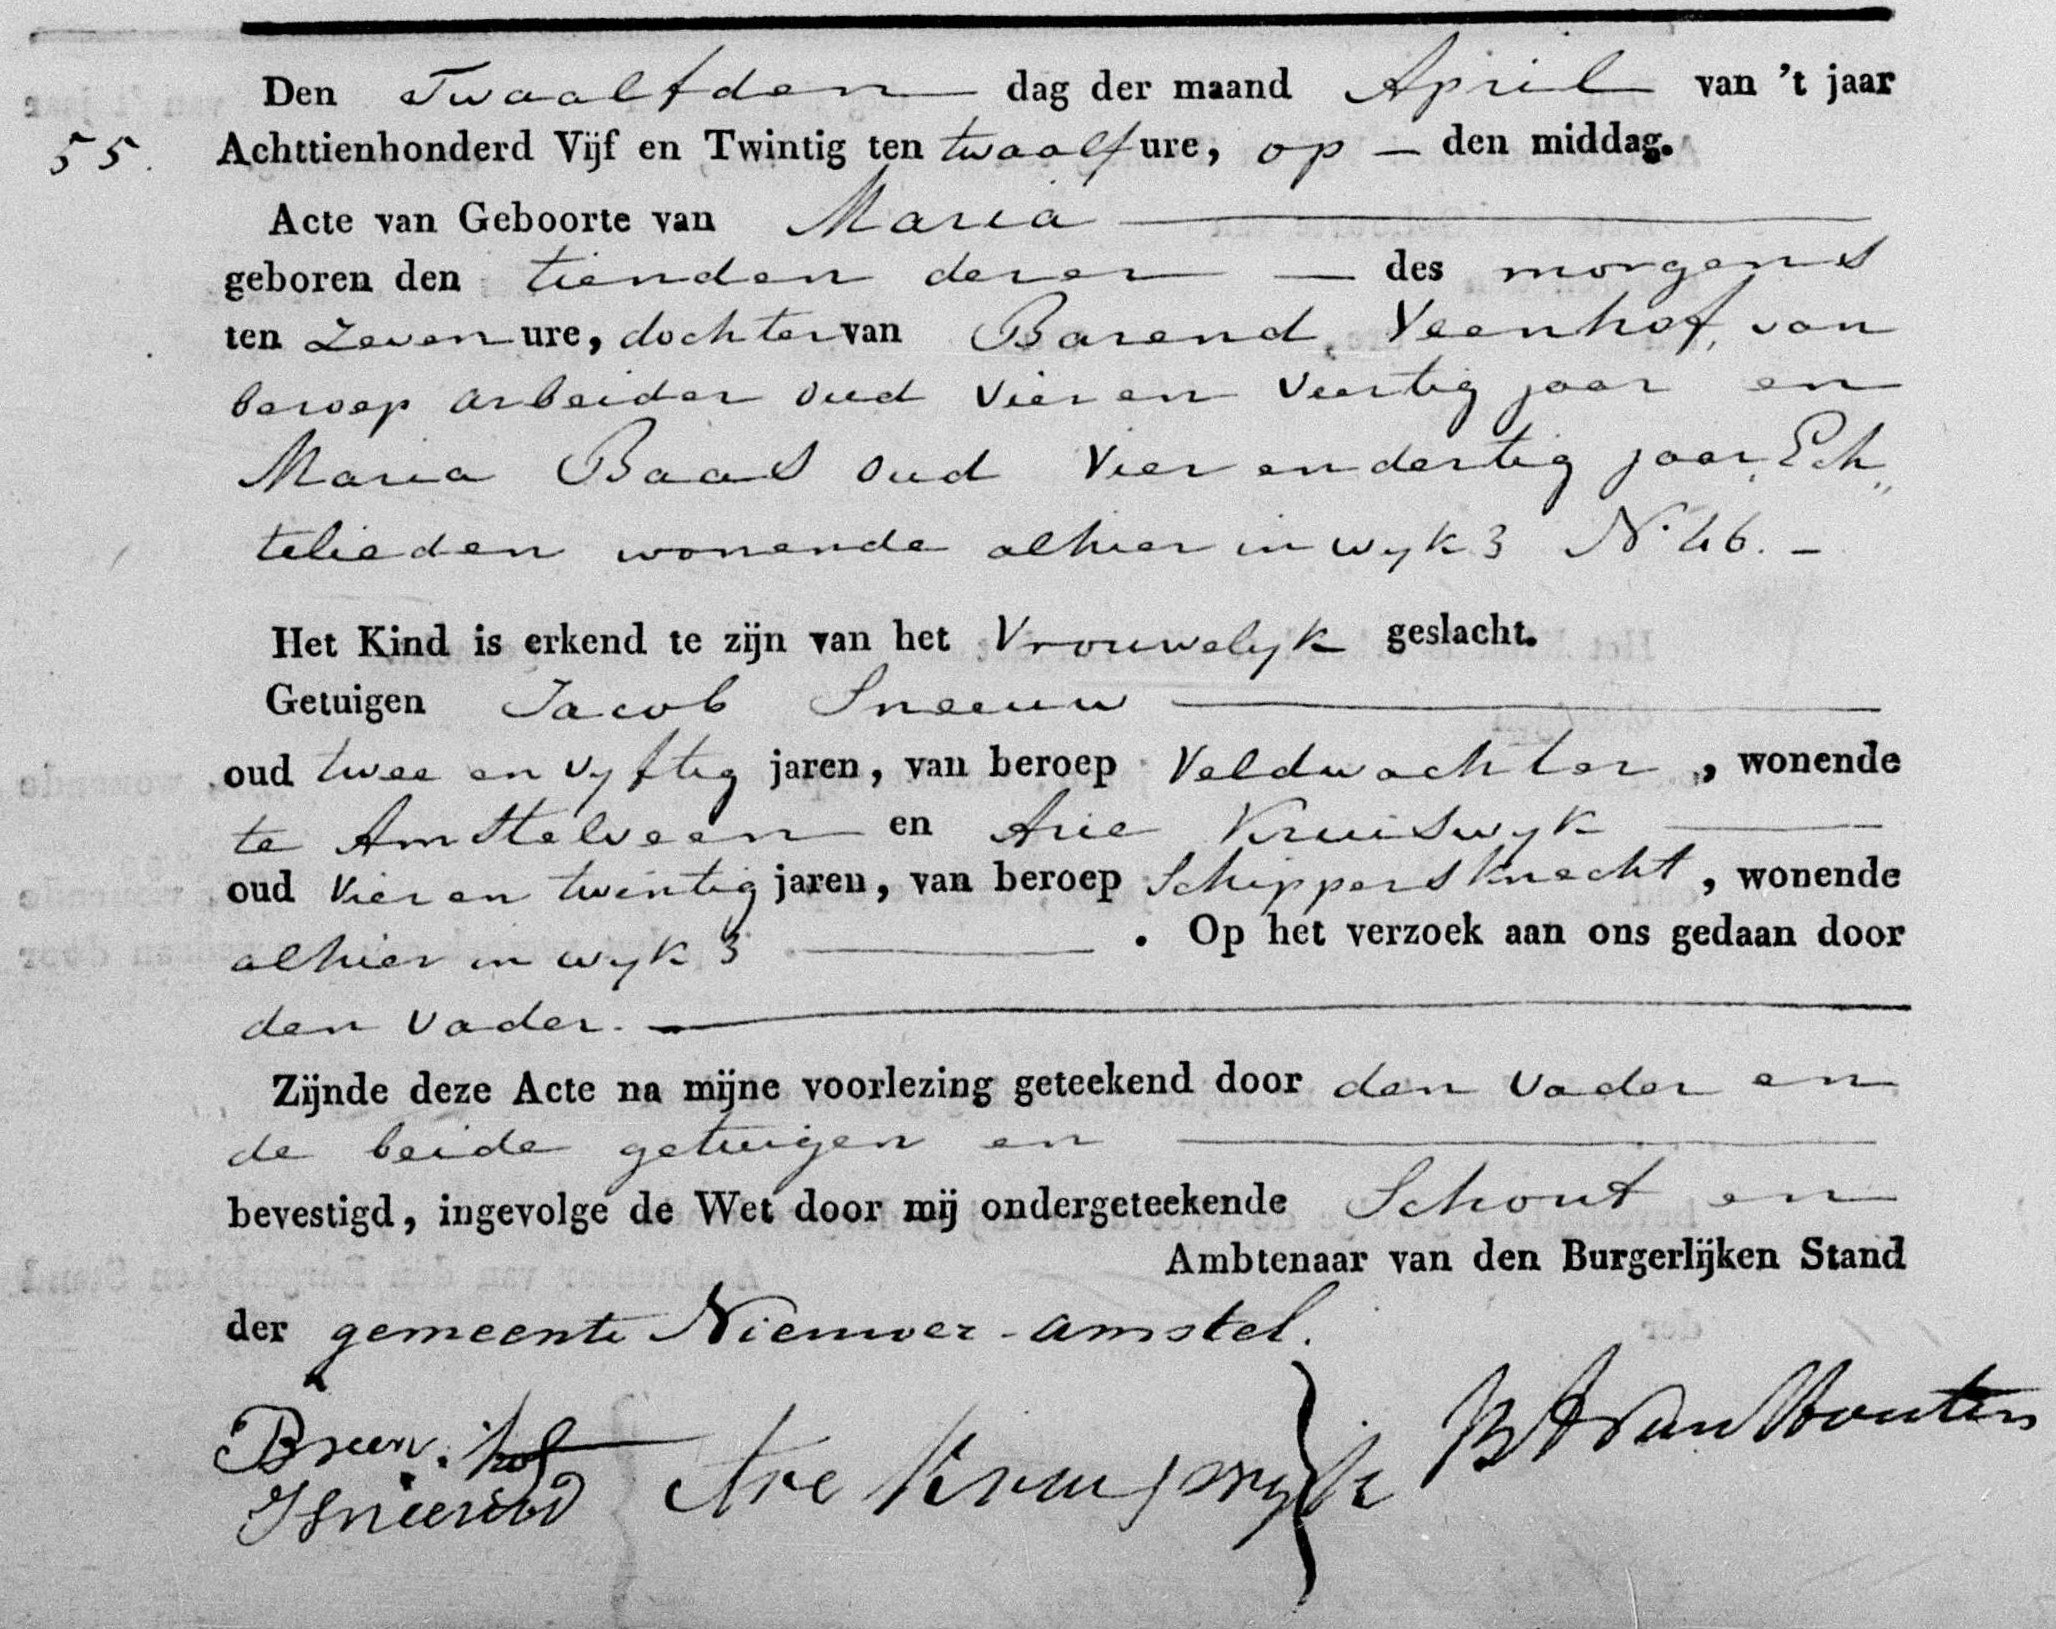 Den Twaalfden dag der maand April van 't jaar
55. Achttienhonderd Vijf en Twintig ten twaalf ure, op — den middag.
Acte van Geboorte van Maria
geboren den tienden dezer — des morgens
ten Zeven ure, dochter van Barend Veenhof, van
beroep arbeider oud vier en veertig jaar en
Maria Baas oud vier en dertig jaar, Ech„
telieden wonende alhier in wyk 3 N. 46. –
Het Kind is erkend te zijn van het Vrouwelyk geslacht.
Getuigen Jacob Sneeuw
oud twee en vyftig jaren, van beroep Veldwachter, wonende
te Amstelveen en Arie Kruiswyk
oud vier en twintig jaren, van beroep Schippersknecht, wonende
alhier in wyk 3 . Op het verzoek aan ons gedaan door
den vader.
Zijnde deze Acte na mijne voorlezing geteekend door den vader en
de beide getuigen en
bevestigd, ingevolge de Wet door mij ondergeteekende Schout en
Ambtenaar van den Burgerlijken Stand
der gemeente Nieuwer-amstel.
Are Kruyswyk
van Houten